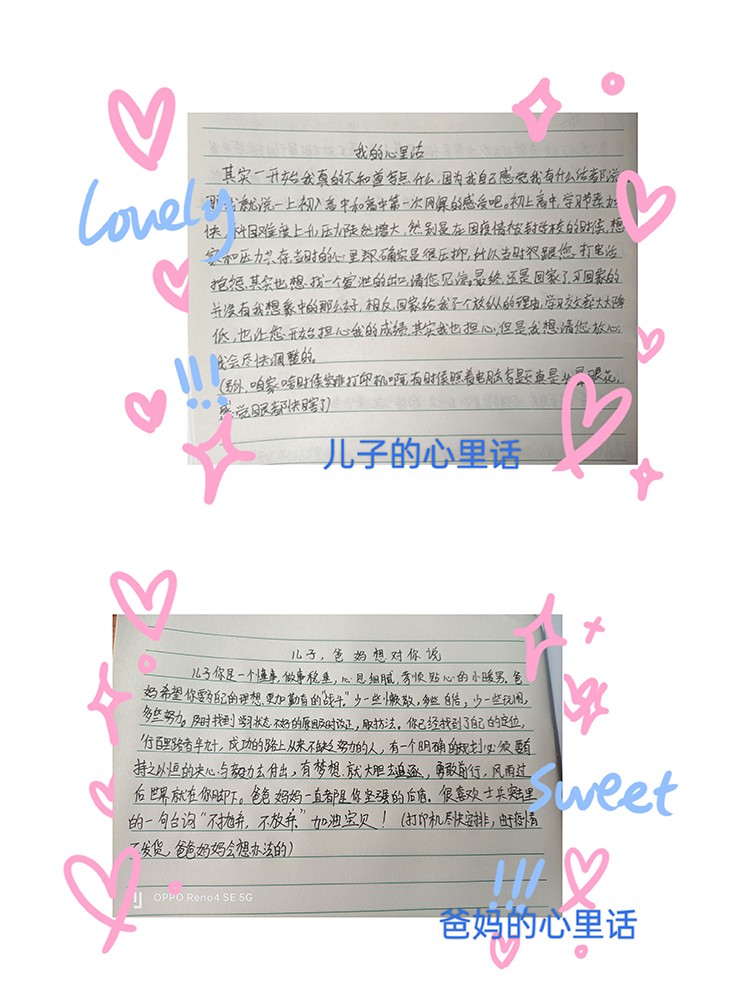 我的心里话
其实一开始我真的不知道写点什么,因为我自己感觉我有什么话都说
那我就说一上初入高中和高中第一次网课的感受吧。初上高中,学习节奏加
快,科目难度上升,压力陡然增大,然别是在因疫情做封学校的时候,想
家和压力共存,当时的心里那确实是很压抑,所以当时很跟您打电话
抱怨,其实也想找一个宣泄的出口,请您见谅。最终,还是回家了,可回家的
并没有我想象中的那么好,相反,回家给我了个放纵的理由,学习效率大大降
低,也让您开始担心我的成绩,其实我也担心,但是我想请您放心,
我会尽快调整的。
(另外,咱家啥时候安排打印机啊,有时候照着电脑写是真是头昏眼花,
感觉眼都快瞎了)
Lovely
!!!
儿子的心里话
儿子,爸妈想对你说
儿子你是一个懂事,做事稳重,心思细腻,勤快贴心的小暖男,爸
妈希望你要为自己的理想更加勤奋的“战斗”少一些懒散,多些自信,少一些玩闹,
多些努力。及时找到学习状态不好的原因及时改正,取找法。你已经找到了自己的定位,
行百里路者半九十,成功的路上从来不缺乏努力的人,有一个明确的规划必须要有
持之以恒的决心与努力去付出,有梦想就大胆去追逐,勇敢前行,风雨过
后世界就在你脚下。爸爸妈妈一直都是你坚强的后盾。很喜欢士兵突击里
的一句台词“不抛弃,不放弃”加油宝贝!(打印机尽快安排,由于疫情
不发货,爸爸妈妈会想办法的)
Sweet
OPPO Reno4 SE 5G
!!!
爸妈的心里话